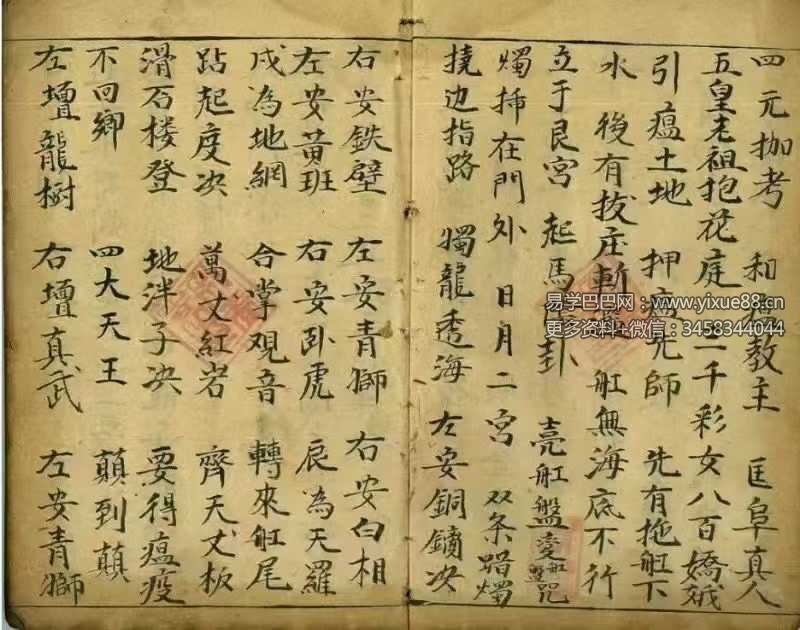 四元枷考 和瘟教主 匡阜真人
五皇老祖抱花庭 三千彩女八百嬌娥
引瘟土地 押瘟元師 先有拖舡下
水 後有拔庄斬 舡無海底不行
立于艮宮 起馬 卦 亮舡盤变舡盤咒
燭揷在門外 日月二宮 双条蜡燭
撓边指路 燭龍透海 左安銅鐀决
右安鉄壁 左安青獅 右安白相
左安黄班 右安卧虎 辰為天羅
戍為地網 合掌观音 轉來舡尾
跕起度决 萬丈紅岩 齊天丈板
滑石楼登 地泮子决 要得瘟疫
不回鄉 四大天王 顛到顛
左壇龍樹 右壇真武 左安青獅
易学巴巴网：www.yixue88.cn
更多资料+微信：3458344044